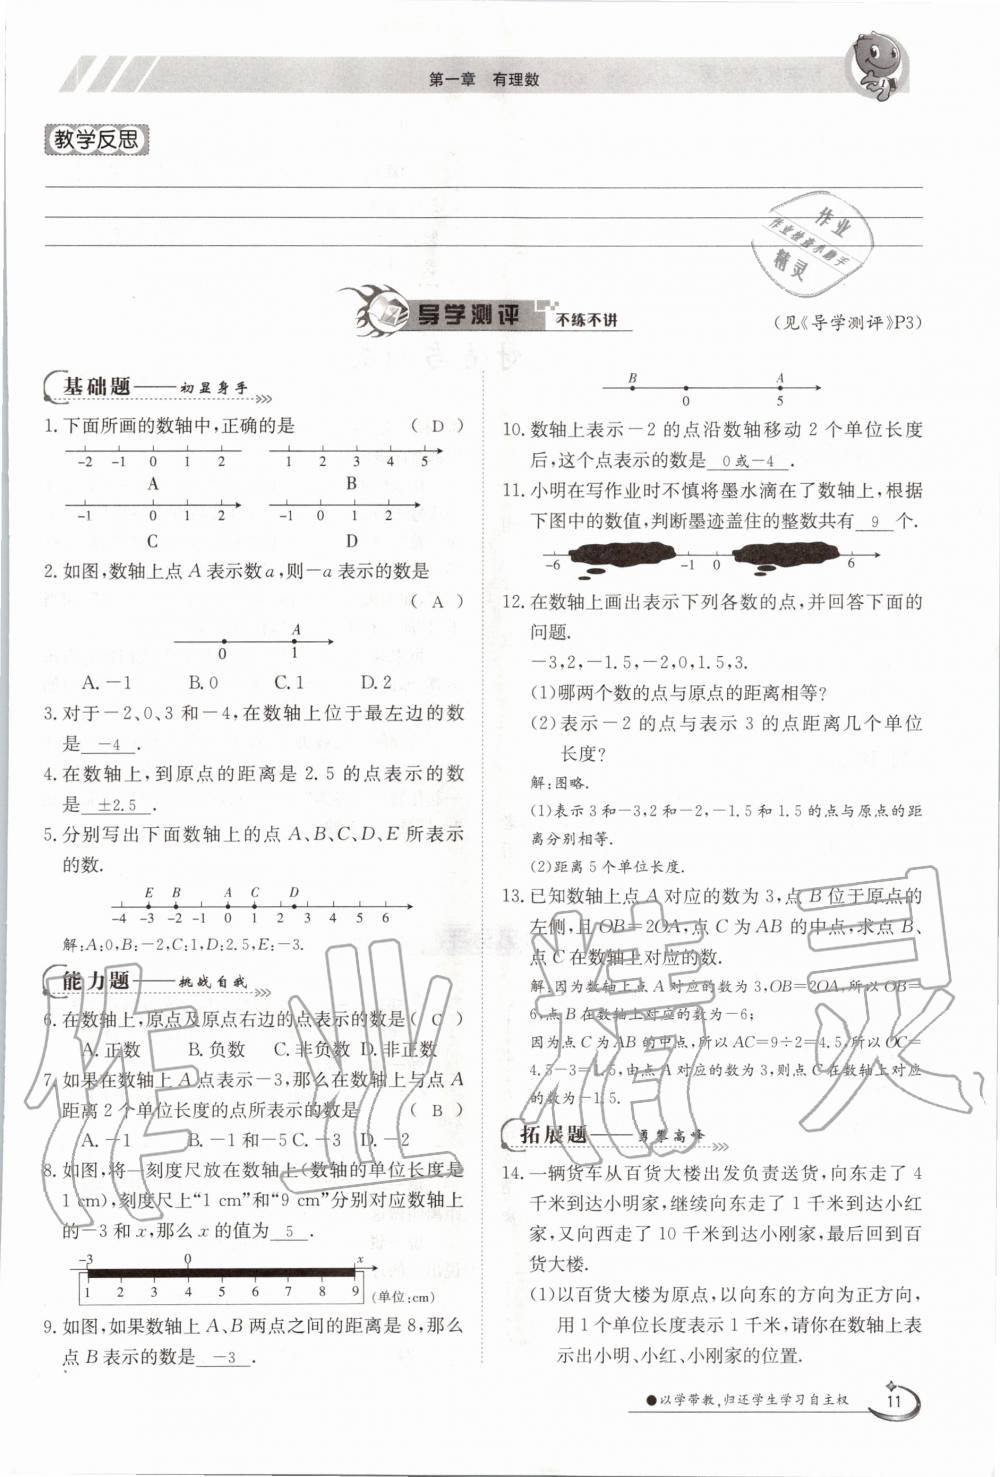 第一章 有理数
教学反思
作业
作业检查小助手
精灵
导学测评 不练不讲
(见《导学测评》P3)
基础题——初显身手
1.下面所画的数轴中,正确的是 ( D )
-2 -1 0 1 2
1 2 3 4 5
A B
-1 0 1 2
-1 0 1 2
C D
2.如图,数轴上点 A 表示数 a,则-a 表示的数是
( A )
A
0 1
A.-1 B.0 C.1 D.2
3.对于-2、0、3 和-4,在数轴上位于最左边的数
是 -4 .
4.在数轴上,到原点的距离是 2.5 的点表示的数
是 ±2.5 .
5.分别写出下面数轴上的点 A、B、C、D、E 所表示
的数.
E B A C D
-4 -3 -2 -1 0 1 2 3 4 5 6
解:A:0,B:-2,C:1,D:2.5,E:-3.
能力题——挑战自我
6.在数轴上,原点及原点右边的点表示的数是( C )
A.正数 B.负数 C.非负数 D.非正数
7.如果在数轴上 A 点表示-3,那么在数轴上与点 A
距离 2 个单位长度的点所表示的数是 ( B )
A.-1 B.-1和-5 C.-3 D.-2
8.如图,将一刻度尺放在数轴上(数轴的单位长度是
1 cm),刻度尺上“1 cm”和“9 cm”分别对应数轴上
的-3 和 x,那么 x 的值为 5 .
-3 0 x
1 2 3 4 5 6 7 8 9 (单位:cm)
9.如图,如果数轴上 A、B 两点之间的距离是 8,那么
点 B 表示的数是 -3 .
B A
0 5
10.数轴上表示-2 的点沿数轴移动 2 个单位长度
后,这个点表示的数是 0或-4 .
11.小明在写作业时不慎将墨水滴在了数轴上,根据
下图中的数值,判断墨迹盖住的整数共有 9 个.
-6 -1 0 6
12.在数轴上画出表示下列各数的点,并回答下面的
问题.
-3,2,-1.5,-2,0,1.5,3.
(1)哪两个数的点与原点的距离相等?
(2)表示-2 的点与表示 3 的点距离几个单位
长度?
解:图略.
(1)表示3和-3,2和-2,-1.5和1.5的点与原点的距
离分别相等.
(2)距离5个单位长度.
13.已知数轴上点 A 对应的数为 3,点 B 位于原点的
左侧,且 OB=2OA,点 C 为 AB 的中点,求点 B、
点 C 在数轴上对应的数.
解:因为数轴上点 A 对应的数为 3,OB=2OA,所以 OB=
6,点 B 在数轴上对应的数为-6;
因为点 C 为 AB 的中点,所以 AC=9÷2=4.5,所以 OC=
4.5-3=1.5,由点 A 对应的数为 3,则点 C 在数轴上对应
的数为-1.5.
拓展题——勇攀高峰
14.一辆货车从百货大楼出发负责送货,向东走了 4
千米到达小明家,继续向东走了 1 千米到达小红
家,又向西走了 10 千米到达小刚家,最后回到百
货大楼.
(1)以百货大楼为原点,以向东的方向为正方向,
用 1 个单位长度表示 1 千米,请你在数轴上表
示出小明、小红、小刚家的位置.
●以学带教,归还学生学习自主权 11
作业精灵